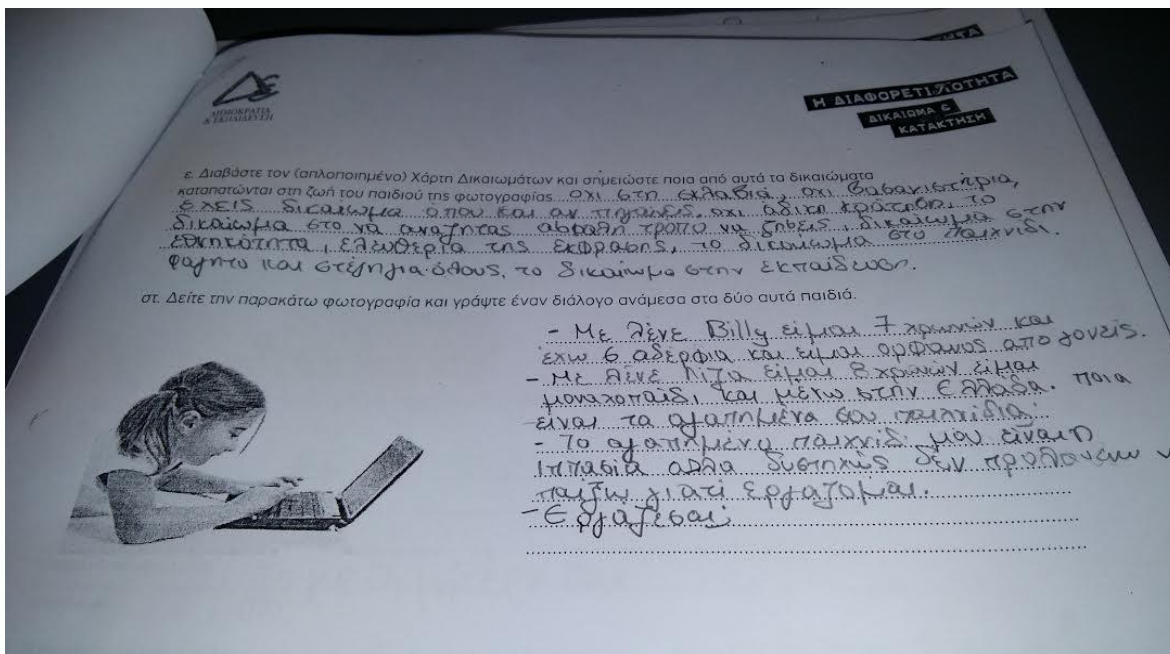 ΔΗΜΟΚΡΑΤΙΑ
& ΕΚΠΑΙΔΕΥΣΗ
Η ΔΙΑΦΟΡΕΤΙΚΟΤΗΤΑ
ΔΙΚΑΙΩΜΑ &
ΚΑΤΑΚΤΗΣΗ
ε. Διαβάστε τον (απλοποιημένο) Χάρτη Δικαιωμάτων και σημειώστε ποια από αυτά τα δικαιώματα
καταπατώνται στη ζωή του παιδιού της φωτογραφίας. οχι στη σκλαβιά, οχι βασανιστήρια,
έχεις δικαίωμα οπου και αν πηγαίνεις, οχι άδικη κράτηση, το
δικαίωμα στο να αναζητάς ασφαλή τρόπο να ζήσεις, δικαίωμα στην
εθνικότητα, ελευθερία της έκφρασης, το δικαίωμα στο παιχνίδι.
φαγητό και στέγη για όλους, το δικαίωμα στην εκπαίδευση.
στ. Δείτε την παρακάτω φωτογραφία και γράψτε έναν διάλογο ανάμεσα στα δύο αυτά παιδιά.
- Με λένε Billy είμαι 7 χρονών και
έχω 6 αδέρφια και είμαι ορφανος απο γονείς.
- Με λένε Λίζα είμαι 8 χρονών είμαι
μοναχοπαίδι και μένω στην Ελλάδα. ποια
είναι τα αγαπημένα σου παιχνίδια;
- Το αγαπημένο παιχνίδι μου είναι η
ιππασία αλλα δυστηχώς δεν προλαναίνω ν
παίζω γιατί εργάζομαι.
- Εργάζεσαι;